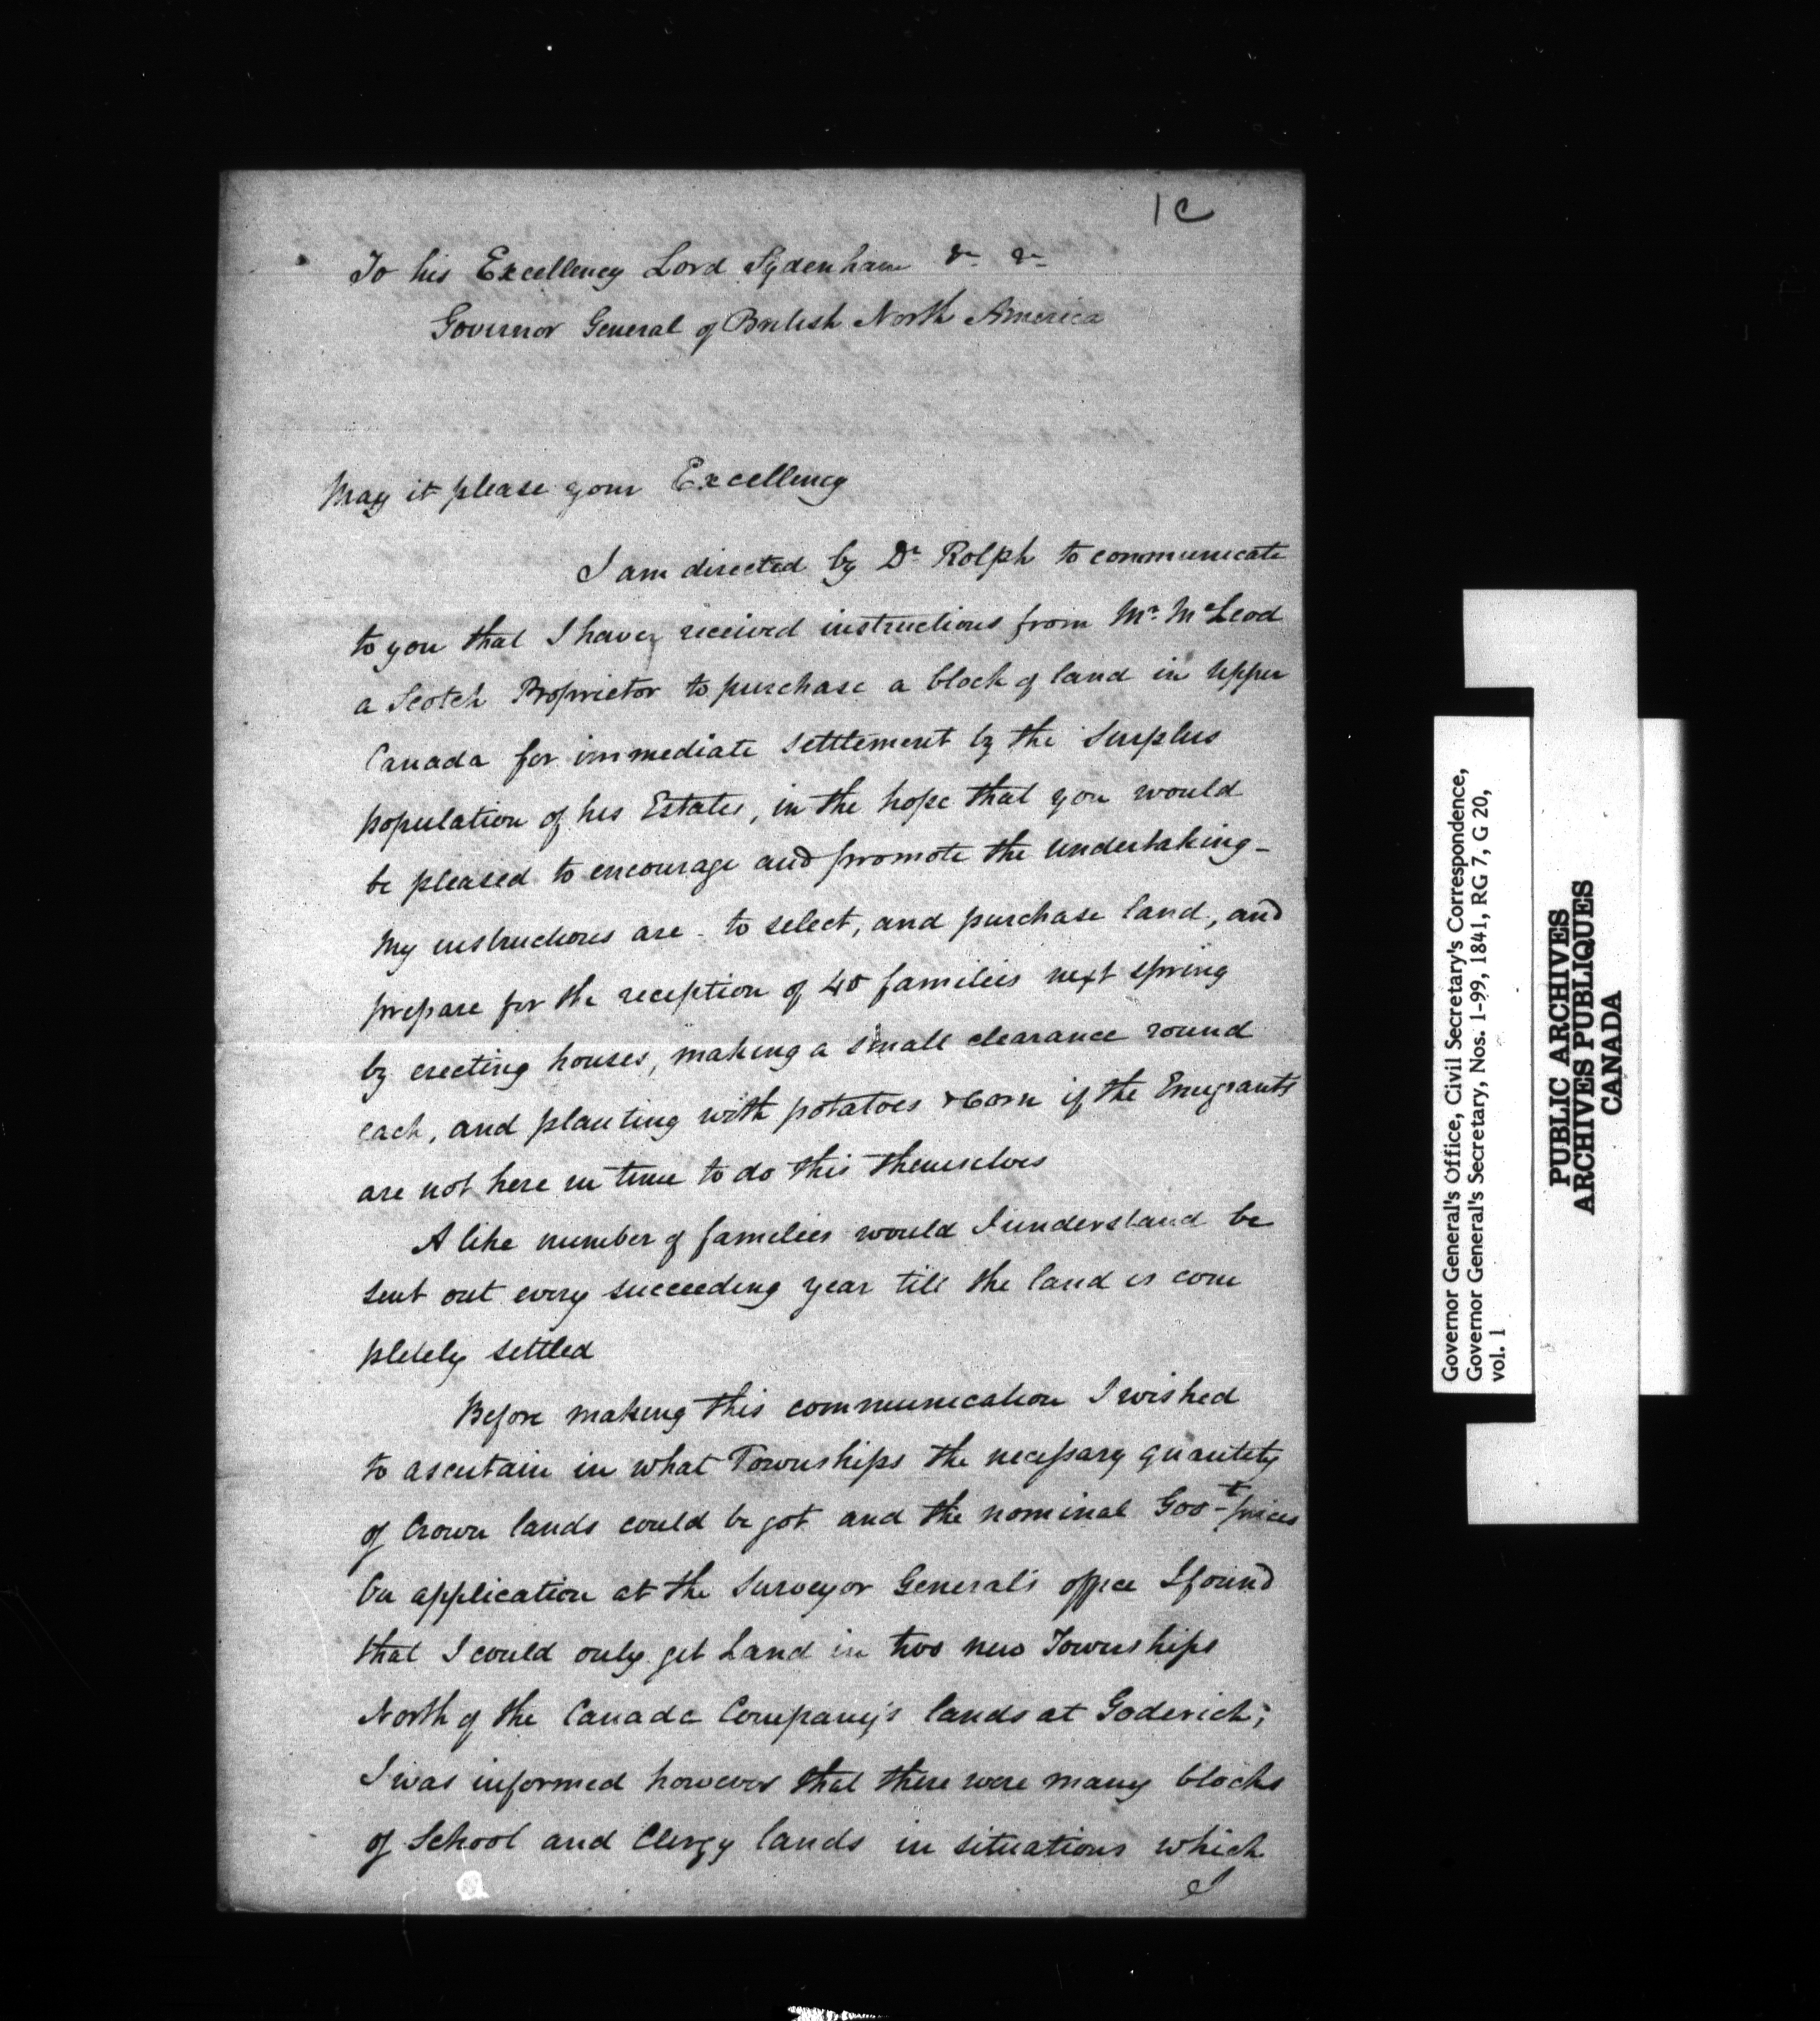 1c
To his Excellency Lord Sydenham &c &c
Governor General of British North America
May it please your Excellency
I am directed by Dr Rolph to communicate
to you that I have received instructions from Mr. McLeod
a Scotch Proprietor to purchase a block of land in Upper
Canada for immediate settlement by the Surplus
population of his Estates, in the hope that you would
be pleased to encourage and promote the undertaking -
My instructions are - to select, and purchase land, and
prepare for the reception of 40 families next spring
by erecting houses, making a small clearance round
each, and planting with potatoes & Corn if the Emigrants
are not here in time to do this themselves
A like number of families would I understand be
sent out every succeeding year till the land is com
pletely settled
Before making this communication I wished
to ascertain in what Townships the necessary quantity
of Crown lands could be got and the nominal Govt prices
On application at the Surveyor General's office I found
that I could only get Land in two new Townships
North of the Canada Company's lands at Goderich;
I was informed however that there were many blocks
of School and Clergy lands in situations which
I
Governor General's Office, Civil Secretary's Correspondence,
Governor General's Secretary, Nos. 1-99, 1841, RG 7, G 20,
vol. 1
PUBLIC ARCHIVES
ARCHIVES PUBLIQUES
CANADA